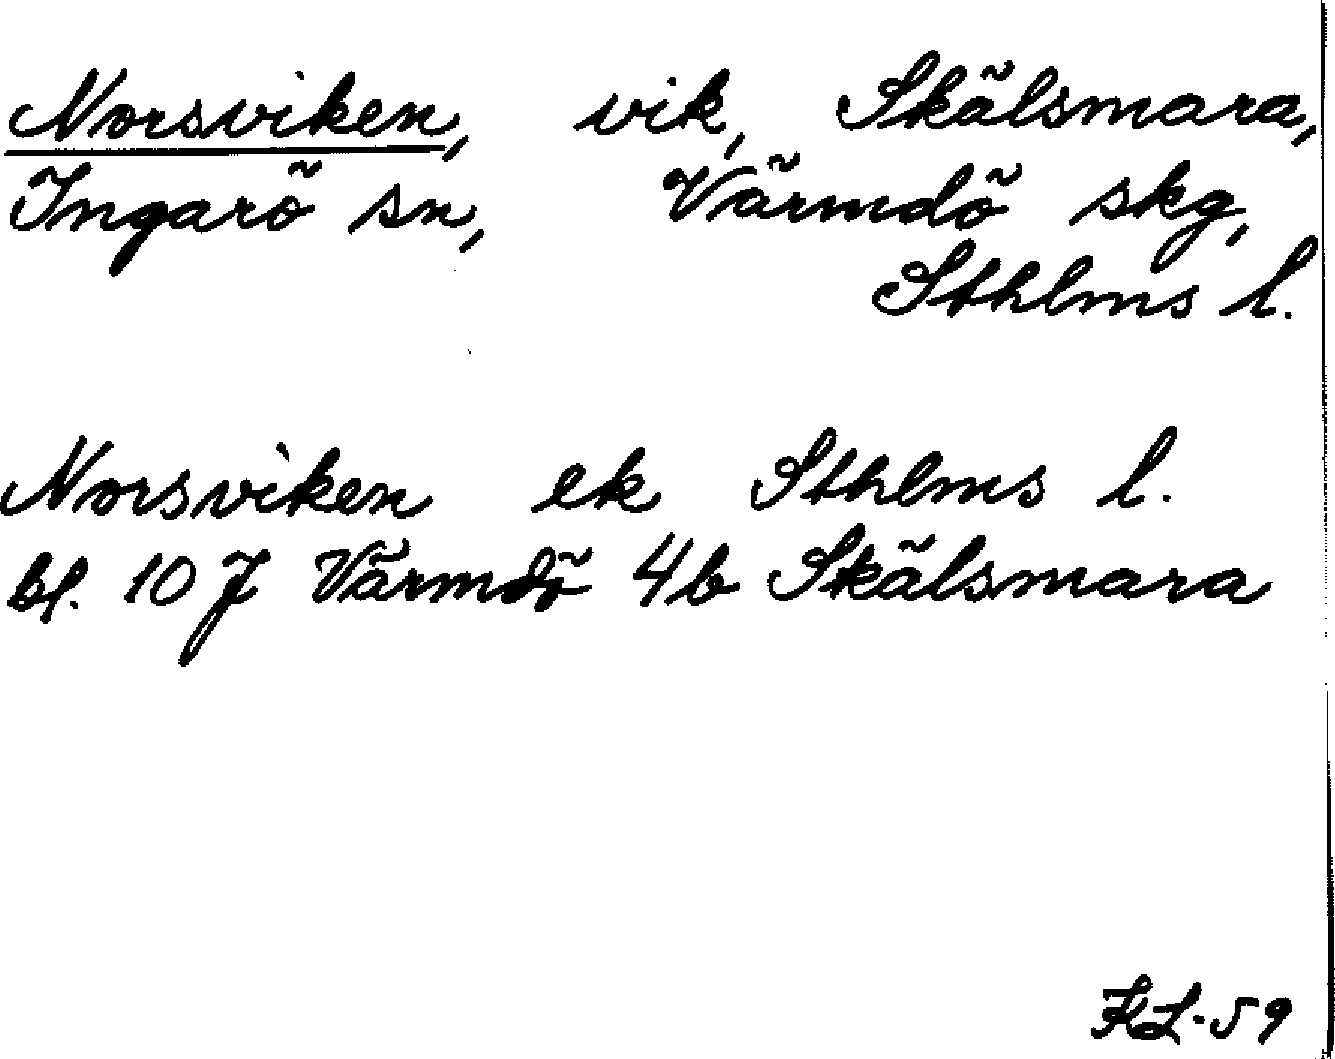 Norsviken, vik, Skälsmara,
Ingarö sn, Värmdö skg,
Sthlms l.
Norsviken ek Sthlms l.
bl. 10 J Värmdö 4b Skälsmara
KL-59